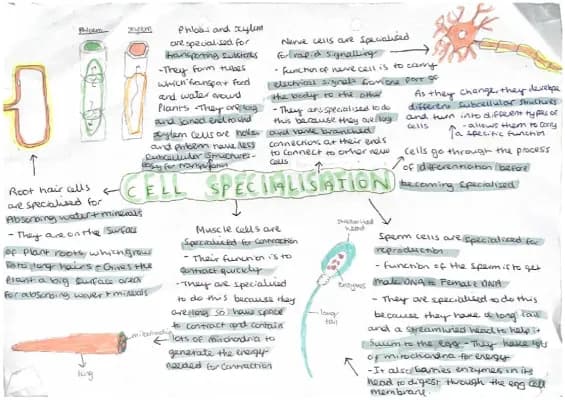 Phloem
Xylem
Phloem and Xylem
are specialised for
transporting substances
- They form tubes
which transport food
and water around
Plants - They are long
and joined end to end
Xylem cells are hollow
and phloem have less
subcellular structures -
easy for transportation
Nerve cells are specialised
for rapid signalling
- function of nerve cell is to carry
electrical signals from one part of
the body to the other
- They are specialised to do
this because they are long
and have branched
connections at their ends
to connect to other nerve
cells
As they change, they develop
different subcellular structures
and turn into different types of
cells
- allows them to carry
a specific function
Cells go through the process
of differentiation before
becoming specialised
CELL SPECIALISATION
Root hair cells
are specialised for
Absorbing water + minerals
- They are on the surface
of plant roots, which grow
into long hairs + Gives the
plant a big surface area
for absorbing water + minerals
Muscle cells are
specialised for contraction
- Their function is to
contract quickly
- They are specialised
to do this because they
are long so have space
to contract and contain
lots of mitochondria to
generate the energy
needed for contraction
mitochondria
long
streamlined
head
enzymes
long
tail
Sperm cells are specialised for
reproduction
- function of the sperm is to get
Male DNA to Female DNA
- They are specialised to do this
because they have a long tail
and a streamlined head to help it
swim to the egg - They have lots
of mitochondria for energy
- It also carries enzymes in
its head to digest through the egg cell
membrane.